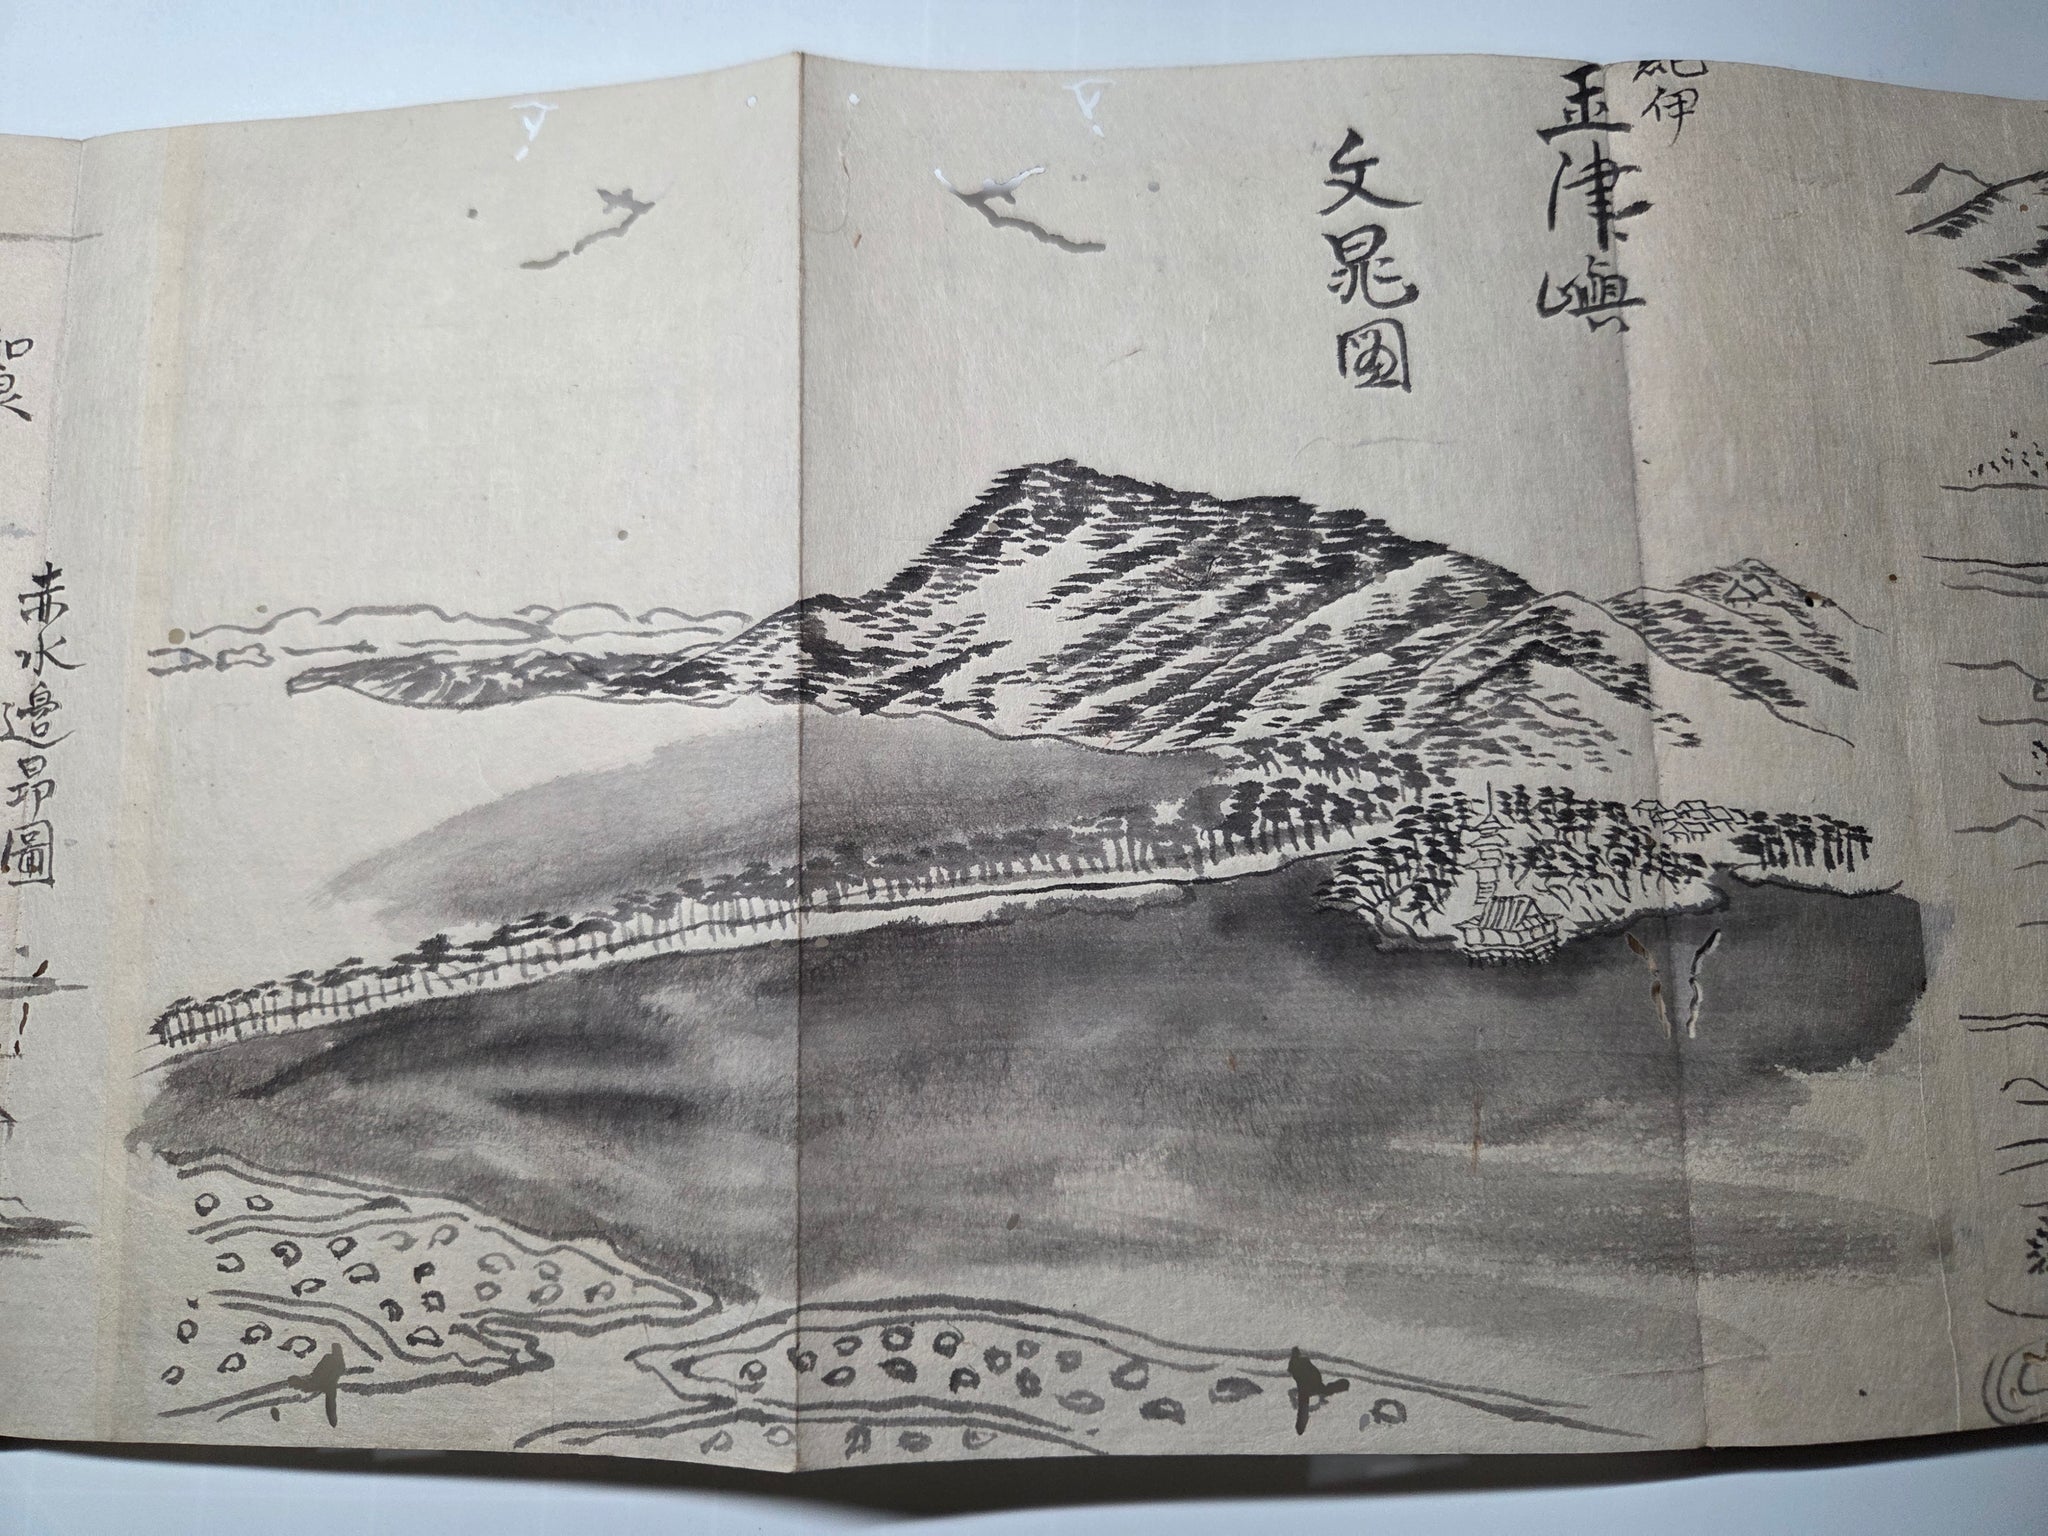 紀伊
玉津嶼
文晁図
和泉
赤水邉昴圖